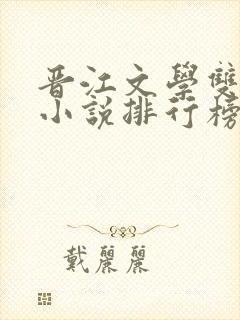 晋江文學雙
小說排行榜
戴麗麗